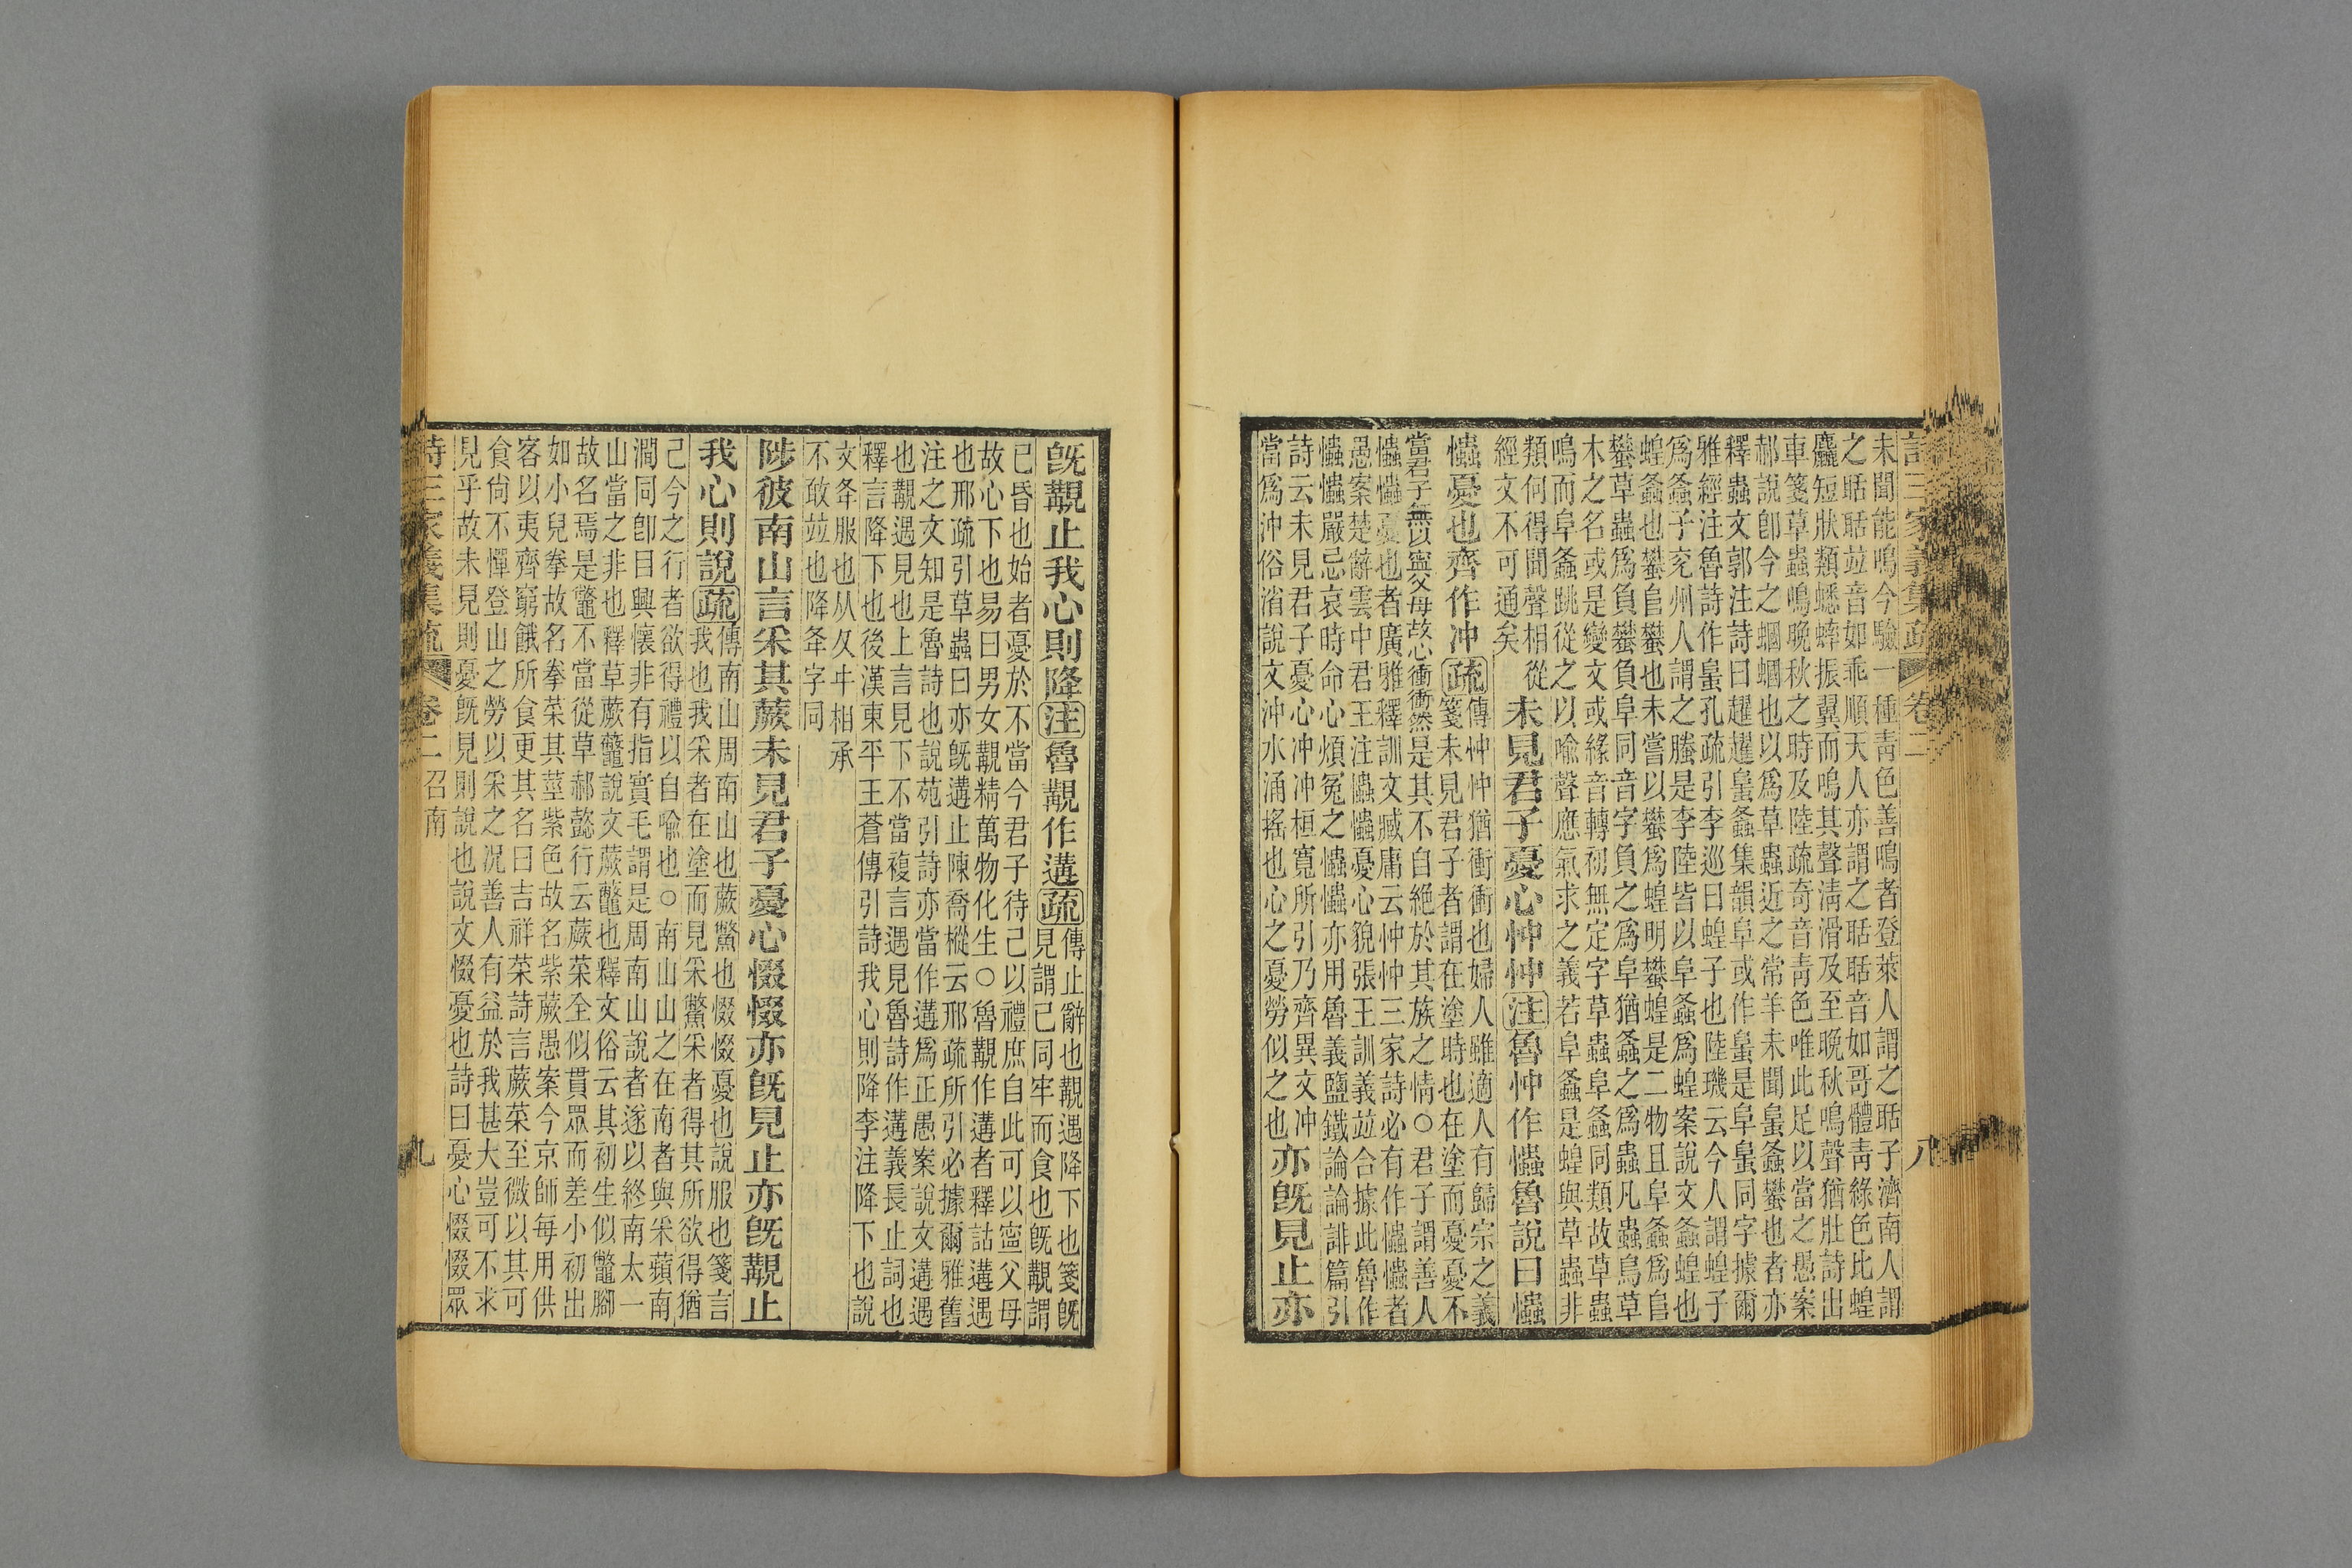 詩三家義集疏 卷二 八
未聞能鳴今驗一種靑色善鳴者登萊人謂之聒子濟南人謂
之聒聒竝音如乖順天人亦謂之聒聒音如哥體靑綠色比蝗
麤短狀類蟋蟀振翼而鳴其聲淸滑及至晩秋鳴聲猶壯詩出
車箋草蟲鳴晩秋之時及陸疏奇音靑色唯此足以當之愚案
郝說卽今之蟈蟈也以爲草蟲近之常羊未聞蛗螽蠜也者亦
釋蟲文郭注詩曰趯趯蛗螽集韻阜或作蛗是阜蛗同字據爾
雅經注魯詩作蛗孔疏引李巡曰蝗子也陸璣云今人謂蝗子
爲螽子兗州人謂之螣是李陸皆以阜螽爲蝗案說文螽蝗也
蝗螽也蠜𨸏蠜也未嘗以蠜爲蝗明蠜蝗是二物且阜螽爲𨸏
蠜草蟲爲負蠜負阜同音字負之爲阜猶螽之爲蟲凡蟲鳥草
木之名或是變文或緣音轉初無定字草蟲阜螽同類故草蟲
鳴而阜螽跳從之以喻聲應氣求之義若阜螽是蝗與草蟲非
類何得聞聲相從
經文不可通矣
未見君子憂心忡忡注魯忡作爞魯說曰爞
爞憂也齊作冲疏
傳忡忡猶衝衝也婦人雖適人有歸宗之義
箋未見君子者謂在塗時也在塗而憂憂不
當君子無以寧父母故心衝衝然是其不自絕於其族之情○君子謂善人
爞爞憂也者廣雅釋訓文臧庸云忡忡三家詩必有作爞爞者
愚案楚辭雲中君王注爞爞憂心貌張王訓義竝合據此魯作
爞爞嚴忌哀時命心煩冤之爞爞亦用魯義鹽鐵論論誹篇引
詩云未見君子憂心冲冲桓寬所引乃齊異文冲
當爲沖俗渻說文沖水涌搖也心之憂勞似之也
亦旣見止亦
旣覯止我心則降注魯覯作遘疏
傳止辭也覯遇降下也箋旣
見謂已同牢而食也旣覯謂
已昏也始者憂於不當今君子待己以禮庶自此可以寧父母
故心下也易曰男女覯精萬物化生○魯覯作遘者釋詁遘遇
也邢疏引草蟲曰亦旣遘止陳喬樅云邢疏所引必據爾雅舊
注之文知是魯詩也說苑引詩亦當作遘爲正愚案說文遘遇
也覯遇見也上言見下不當複言遇見魯詩作遘義長止詞也
釋言降下也後漢東平王蒼傳引詩我心則降李注降下也說
文夅服也从夂㐄相承
不敢竝也降夅字同
陟彼南山言采其蕨未見君子憂心惙惙亦旣見止亦旣覯止
我心則說疏
傳南山周南山也蕨虌也惙惙憂也說服也箋言
我也我采者在塗而見采虌采者得其所欲得猶
己今之行者欲得禮以自喻也○南山山之在南者與采蘋南
澗同卽曰興懷非有指實毛謂是周南山說者遂以終南太一
山當之非也釋草蕨虌說文蕨虌也釋文俗云其初生似虌腳
故名焉是虌不當從草郝懿行云蕨菜全似貫眾而差小初出
如小兒拳故名拳菜其莖紫色故名紫蕨愚案今京師每用供
客以夷齊窮餓所食更其名曰吉祥菜詩言蕨菜至微以其可
食尙不憚登山之勞以采之况善人有益於我甚大豈可不求
見乎故未見則憂旣見則說也說文惙憂也詩曰憂心惙惙眾
詩三家義集疏 卷二召南 九